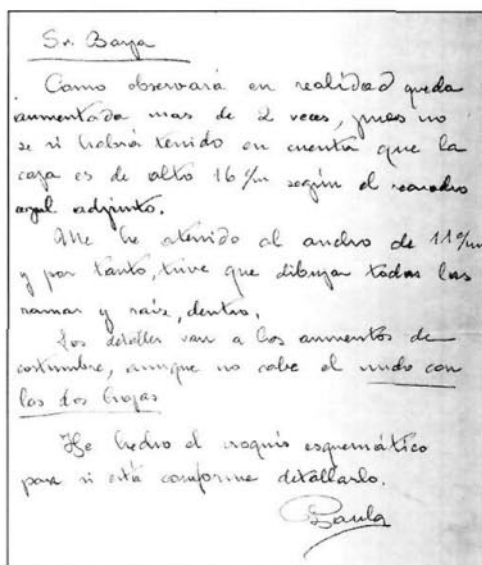 Sr. Barja
Como observará en realidad queda
aumentada mas de 2 veces, pues no
se si habrá tenido en cuenta que la
caja es de alto 16 c/m según el recuadro
azul adjunto.
Me he atenido al ancho de 11 c/m
y por tanto, tuve que dibujar todas las
ramas y raiz, dentro.
Los detalles van a los aumentos de
costumbre, aunque no cabe el nudo con
las dos hojas
He hecho el croquis esquemático
para si está conforme detallarlo.
Paula